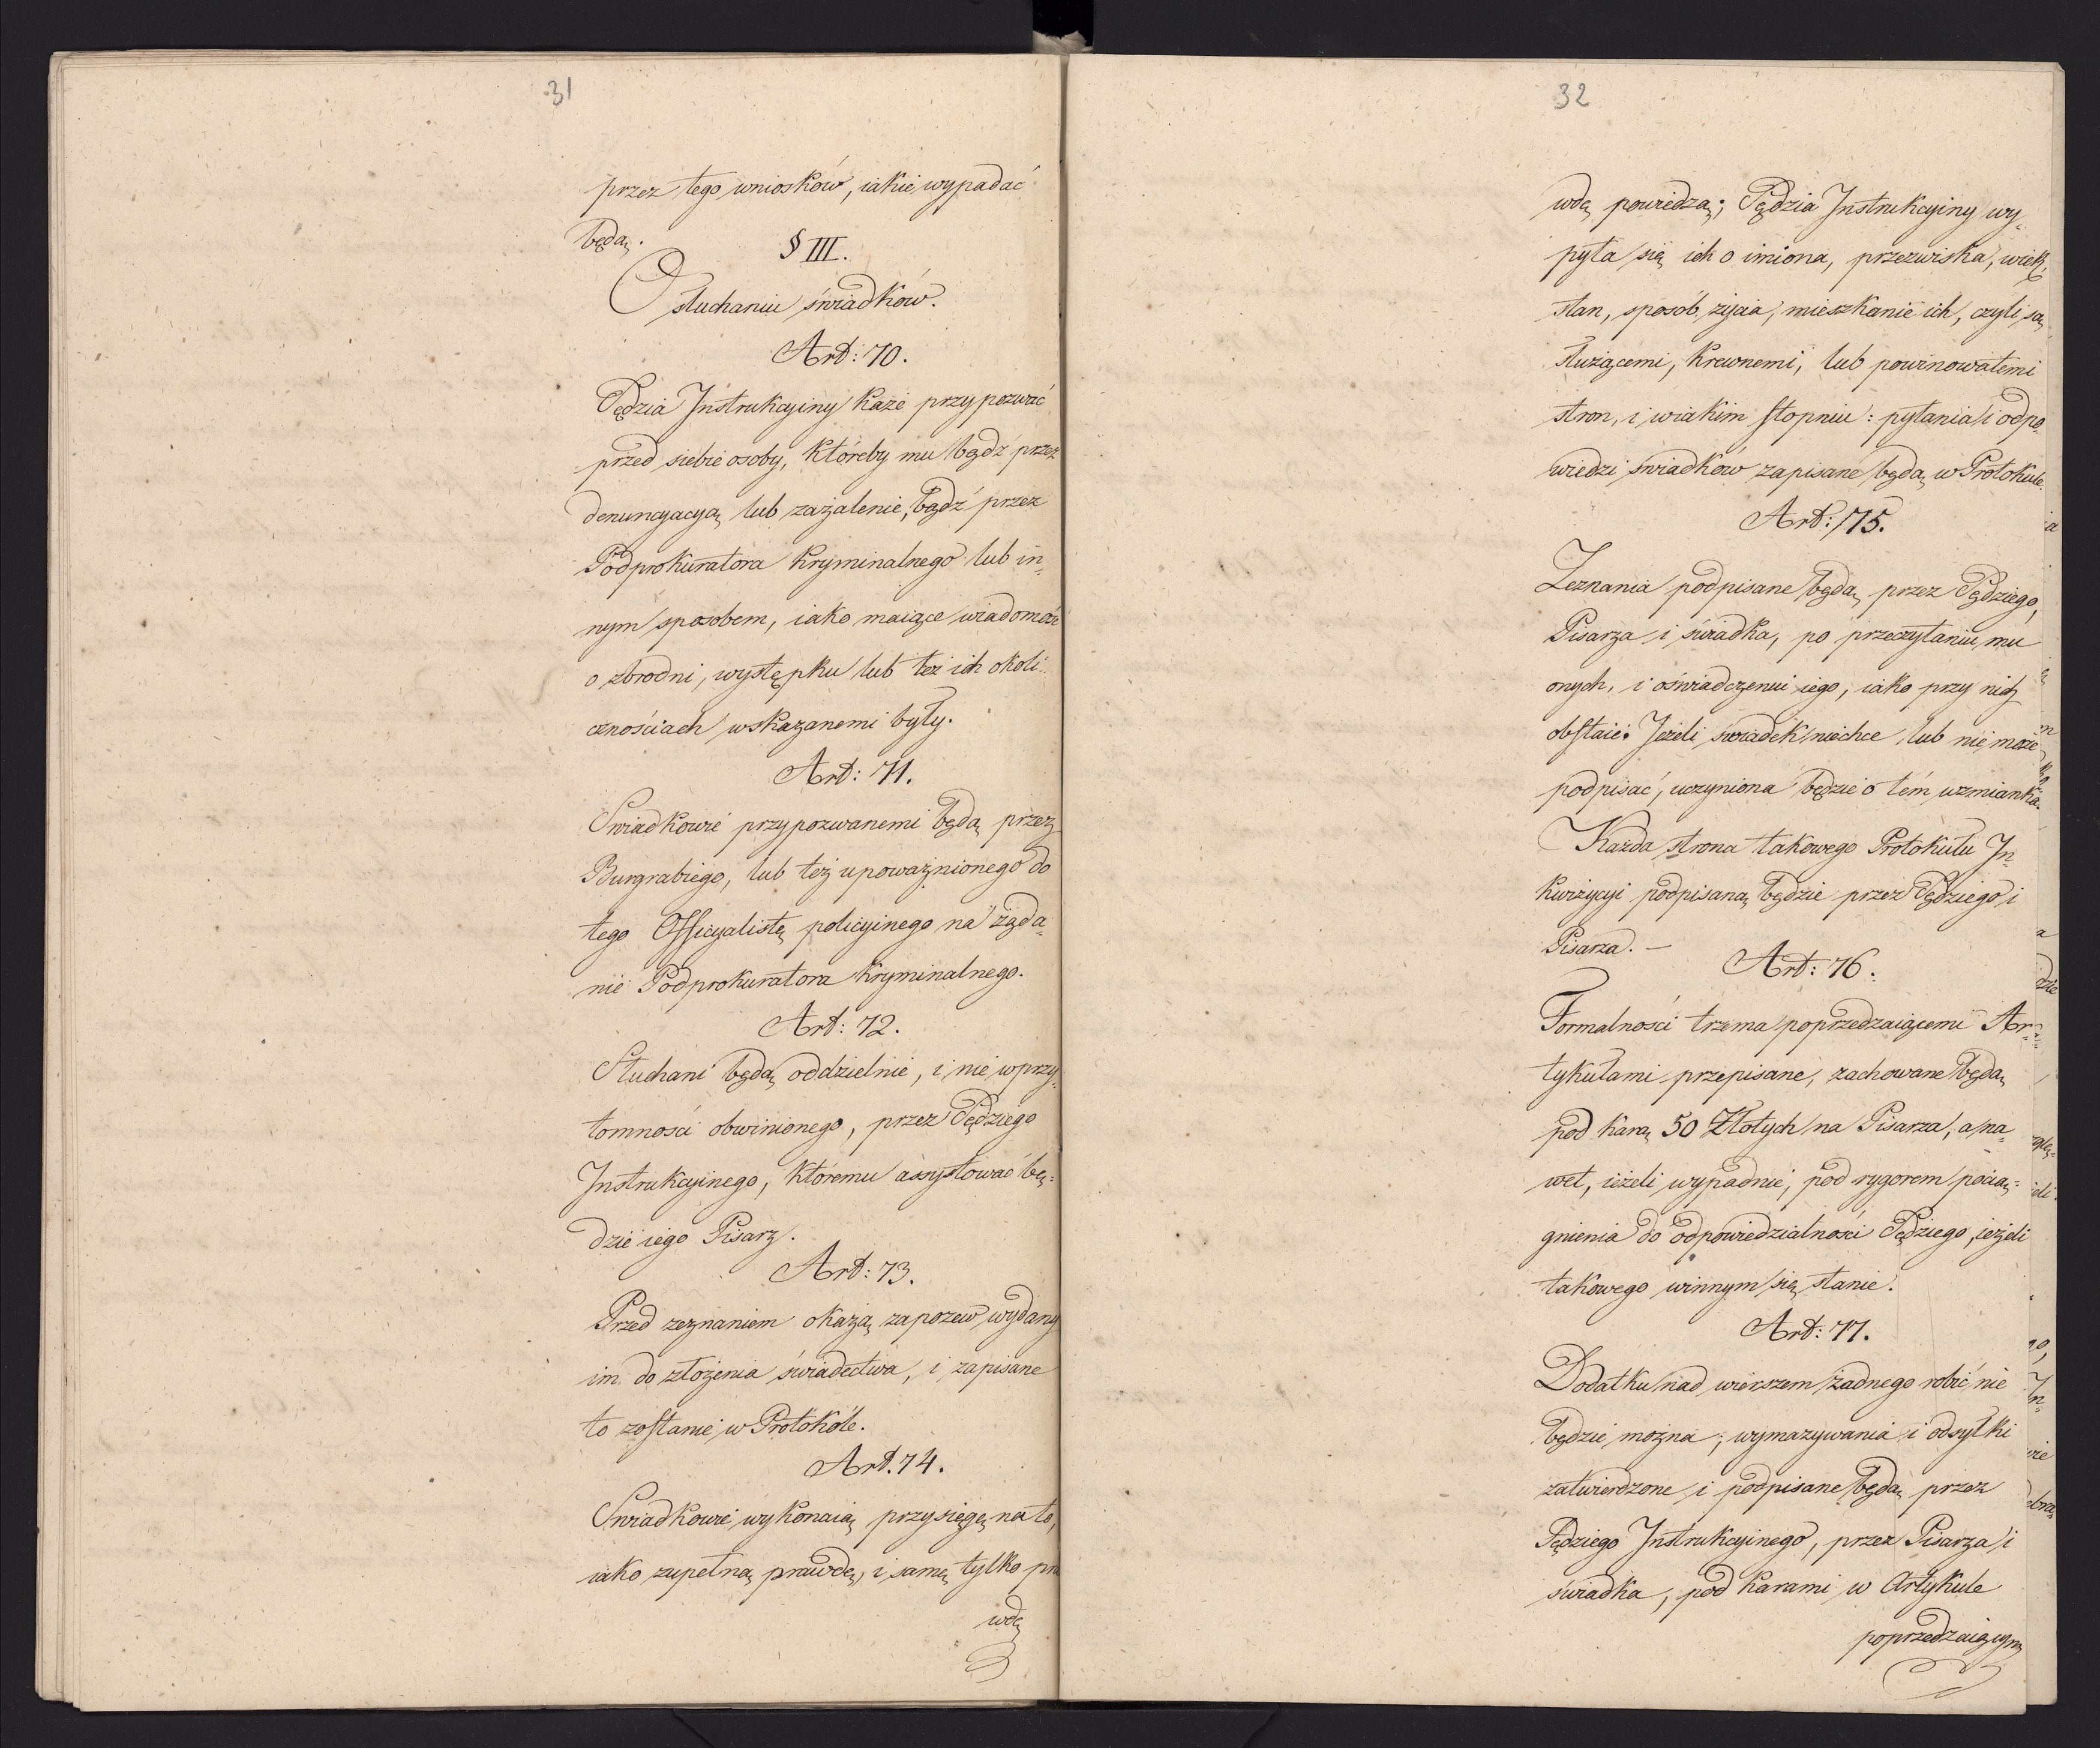 31
przez tego wniosków, iakie wypadać
będą.
§ III.
O słuchaniu świadków.
Art: 70.
Sędzia Instrukcyiny każe przypozwać
przed siebie osoby, któreby mu bądź przez
denuncyacyą lub zażalenie, bądź przez
Podprokuratora kryminalnego lub in„
nym sposobem, iako maiące wiadomość
o zbrodni, występku lub też ich okoli„
cznościach wskazanemi były.
Art: 71.
Swiadkowie przypozwanemi będą przez
Burgrabiego, lub też upoważnionego do
tego Officyalistę policyinego na żąda„
nie Podprokuratora kryminalnego.
Art: 72.
Słuchani będą oddzielnie, i nie w przy„
tomności obwinionego, przez Sędziego
Instrukcyinego, któremu assystować bę„
dzie iego Pisarz.
Art: 73.
Przed zeznaniem okażą zapozew wydany
im do złożenia świadectwa, i zapisane
to zostanie w Protokóle.
Art. 74.
Swiadkowie wykonaią przysięgę na to,
iako zupełną prawdę, i samę tylko pra
wdę
32
wdę powiedzą; Sędzia Instrukcyiny wy„
pyta się ich o imiona, przezwiska, wiek,
stan, sposób życia, mieszkanie ich, czyli są
służącemi, krewnemi, lub powinowatemi
stron, i w iakim stopniu: pytania i odpo„
wiedzi świadków zapisane będą w Protokule.
Art: 75.
Zeznania podpisane będą przez Sędziego,
Pisarza i świadka, po przeczytaniu mu
onych, i oświadczeniu iego, iako przy nich
obstaie. Jeżeli świadek niechce lub nie może
podpisać, uczyniona będzie o tém wzmianka.
Każda strona takowego Protokułu In
kwizycyi podpisaną będzie przez Sędziego i
Pisarza. —
Art: 76.
Formalności trzema poprzedzaiącemi Ar„
tykułami przepisane, zachowane będą
pod karą 50 Złotych na Pisarza, a na„
wet, ieżeli wypadnie, pod rygorem pocią„
gnienia do odpowiedzialności Sędziego, ieżeli
takowego winnym się stanie.
Art: 77.
Dodatku nad wierszem żadnego robić nie
będzie można; wymazywania i odsyłki
zatwierdzone i podpisane będą przez
Sędziego Instrukcyinego, przez Pisarza i
świadka, pod karami w Artykule
poprzedzaiącym